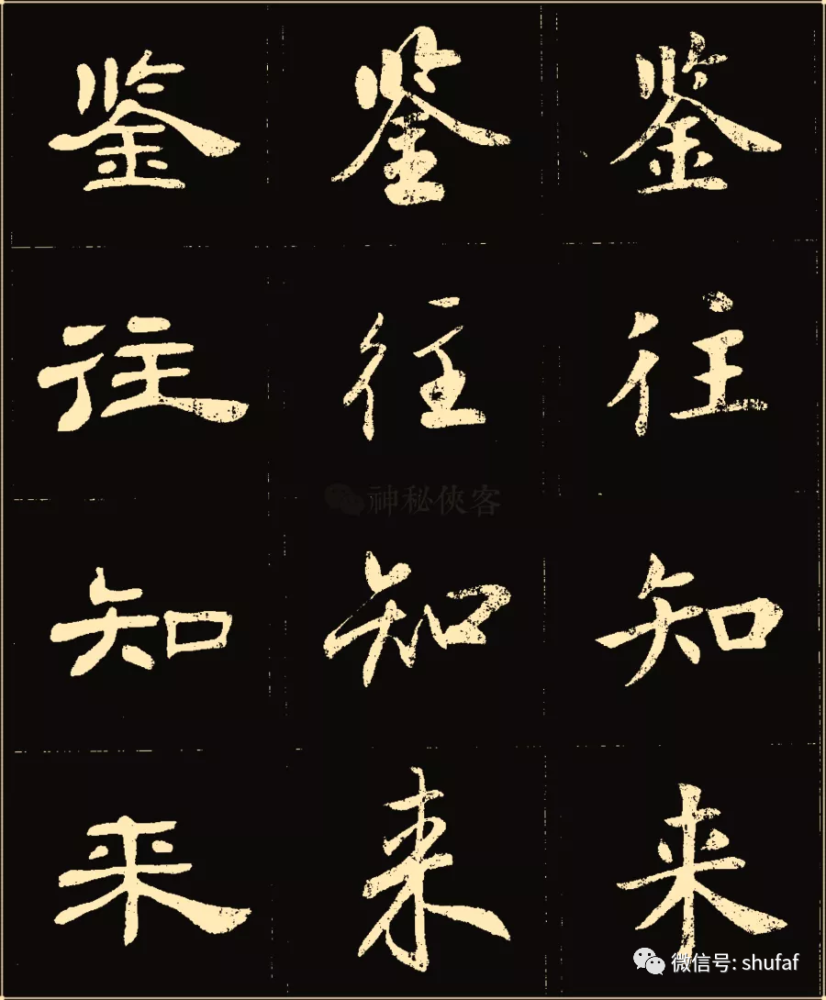 鉴往知来
鉴往知来
鉴往知来
神秘俠客
微信号: shufaf